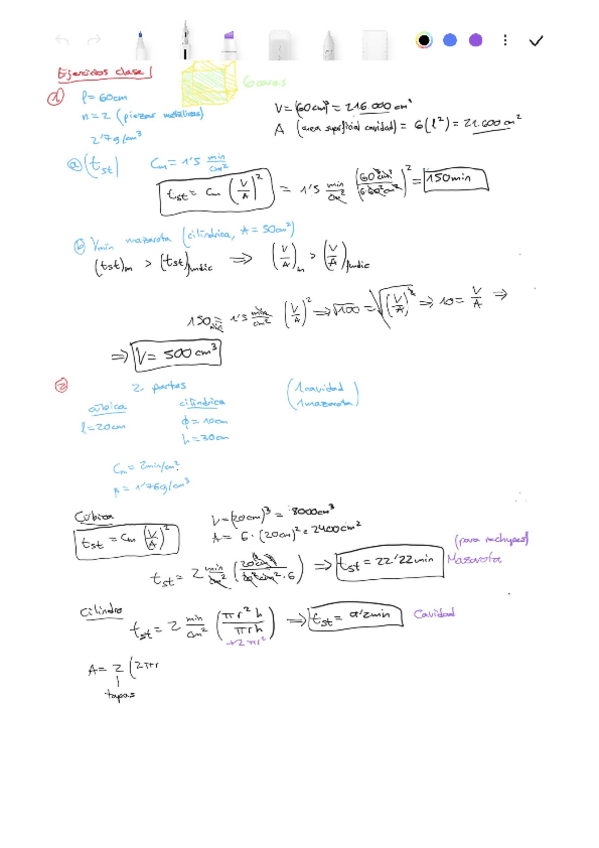 Ejercicios clase 1
① l = 60cm
6 caras
n = 2 (piezas metálicas)
2'7g/cm³
V = (60cm)³ = 216.000 cm³
A (área superficial cavidad) = 6(l²) = 21.600 cm²
ⓐ (tst)
Cm = 1'5 min/cm²
tst = Cm (V/A)² = 1'5 min/cm² (60³cm³/6·60²cm²)² = 150min
ⓑ Vmin mazarota (cilíndrica, A = 50cm²)
(tst)m > (tst)fundic ⇒ (V/A)m > (V/A)fundic
150 min = 1'5 min/cm² (V/A)² ⇒ √100 = √(V/A)² ⇒ 10 = V/A ⇒
⇒ V = 500 cm³
② 2 partes
(1 cavidad
1 mazarota)
cúbica
l = 20cm
cilíndrica
ϕ = 10cm
h = 30cm
Cm = 2min/cm²
Cúbica
tst = Cm (V/A)²
V = (20cm)³ = 8000cm³
A = 6 · (20cm)² = 2400cm²
tst = 2 min/cm² (20³cm³/20²cm²·6) ⇒ tst = 22'22min
(para rechupes)
Mazarota
Cilindro
tst = 2 min/cm² (πr²h/πrh) ⇒ tst = a'2min
+2πr²
Cavidad
A = 2 (2πr
tapas